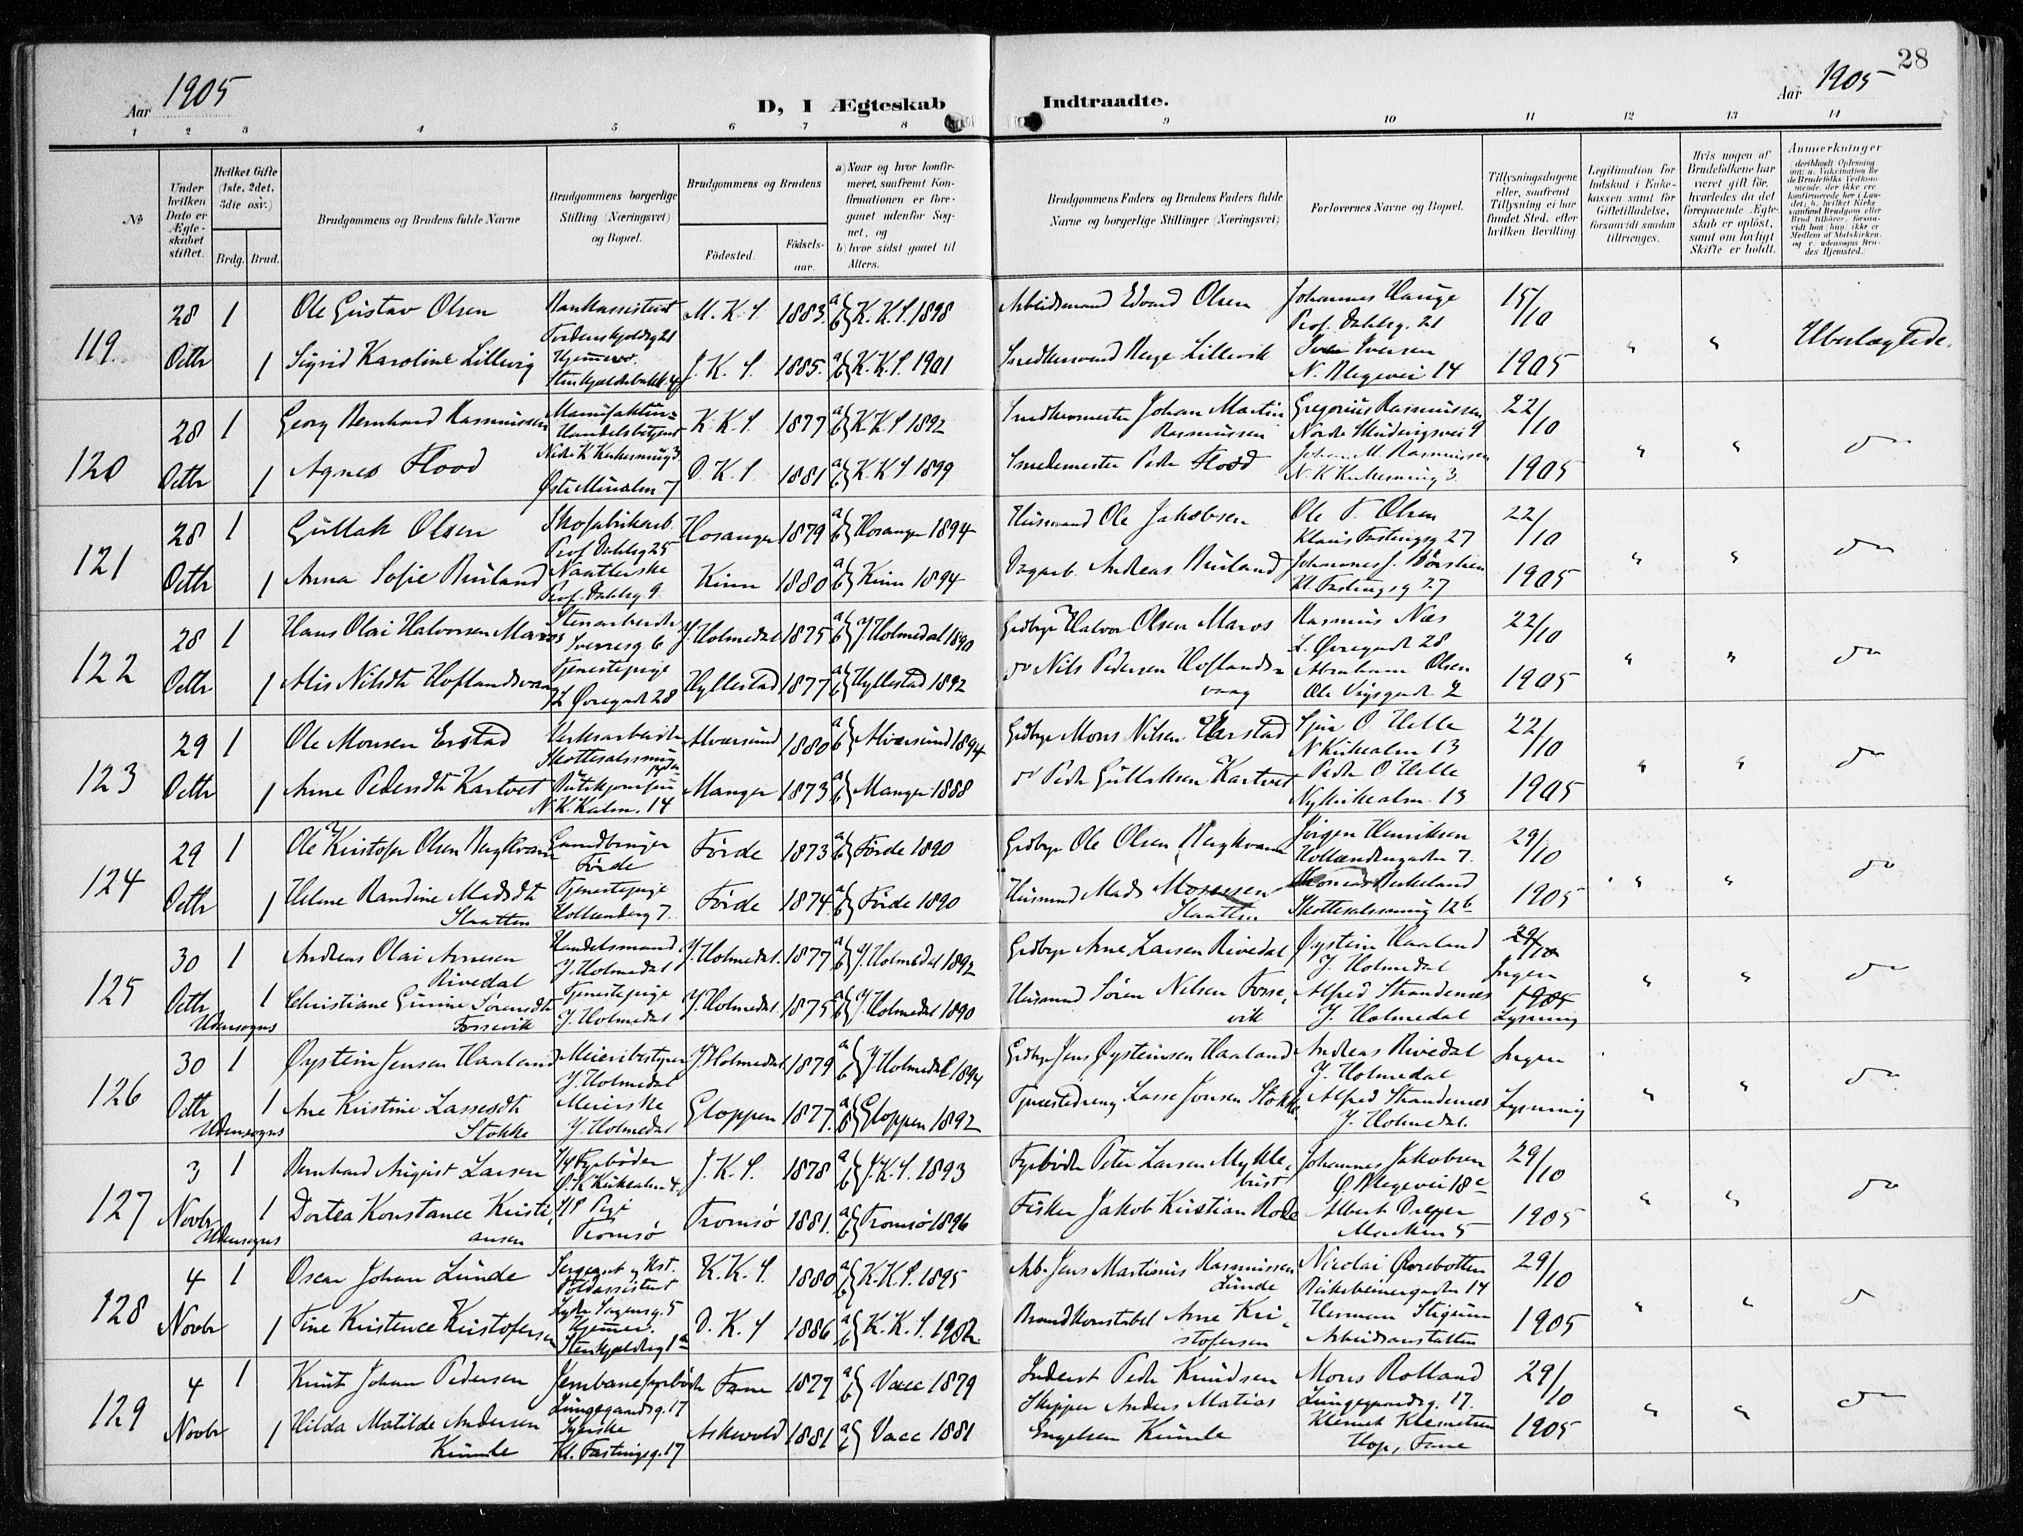 28
Aar 1905
D, I Ægteskab Indtraadte.
Aar 1905
1 2 3 4 5 6 7 8 9 10 11 12 13 14
№
Under hvilken Dato er Ægteskabet stiftet.
Hvilket Gifte (1ste, 2det, 3die osv.)
Brdg. Brud.
Brudgommens og Brudens fulde Navne
Brudgommens borgerlige Stilling (Næringsvei) og Bopæl.
Brudgommens og Brudens
Fødested.
Fødselsaar.
a) Naar og hvor konfirmeret, saafremt Konfirmationen er foregaaet udenfor Sognet, og
b) hvor sidst gaaet til Alters.
Brudgommens Faders og Brudens Faders fulde Navne og borgerlige Stillinger (Næringsvei)
Forlovernes Navne og Bopæl.
Tillysningsdagene eller, saafremt Tillysning ei har fundet Sted, efter hvilken Bevilling
Legitimation for Indskud i Enkekassen samt for Giftetilladelse, forsaavidt saadan tiltrænges.
Hvis nogen af Brudefolkene har været gift før, hvorledes da det foregaaende Ægteskab er opløst, samt om lovligt Skifte er holdt.
Anmærkninger
119. 28 Octbr 1 Ole Gustav Olsen Bankassistent Tordenskjoldsg 21 M. K. S. 1883 a b K. K. S. 1898 Arbeidsmand Edvard Olsen Johannes Hauge Prof. Dahlsg. 21 15/10
1 Sigrid Karoline Lillevig Hjemmev. J. K. S. 1885. a b K. K. S. 1901 Snedkersvend Berge Lillevik Iversen N. Blegevei 14 1905 " " Ubeslægtede.
120 28 Octbr 1 Georg Bernhard Rasmussen Manufaktur= Handelsbetjent K. K. S. 1877 a b K. K. S 1892 Snedkermester Johan Martin Rasmussen Gregorius Rasmussen 22/10
1 Agnes Flood D. K. S. 1881 a b K. K. S 1899 Smedemester Peder Flood Johan M. Rasmussen 1905 " " do
121 28 Octbr 1 Gullak Olsen Skofabrikarb. Prof Dahlsg 25 Hosanger 1879 a b Hosanger 1894 Husmand Ole Jakobsen Ole T. Olsen Klaus Fastingsg 27 22/10
1 Anna Sofie Buland Naatlerske Prof. Dahlsg 9 Kinn 1880 a b Kinn 1894 Dagarb. Andreas Buland Johannes J. Kl. Fastingsg 27 1905 " " do
122 28 Octbr 1 Hans Olai Halvorsen Maros Stenarbeider Sverresg 6 Y. Holmedal 1875 a b Y. Holmedal 1890 Grdbrgr Halvor Olsen Maros Rasmus Næs L. Øvregade 28 22/10
1 Alis Nilsdtr Hoflandsvaag Tjenestepige L Øvregade 28 Hyllestad 1877 a b Hyllestad 1892 do Nils Pedersen Hoflandsvaag Abraham Olsen Ole Viigsgade 2 1905 " " do
123 29 Octbr 1 Ole Monsen Erstad Verksarbeider Alversund 1880 a b Alversund 1894 Grdbrgr Mons Nilsen Erstad O Helle N Kirkealm 13 22/10
1 Anne Pedersdtr Kartvet N. K. Kalm. 14 Manger 1873 a b Manger 1888 do Peder Gullaksen Kartvet Peder O Helle Ny Kirkealm. 13 1905 " " do
124 29 Octbr 1 Ole Kristofer Olsen Bergkvam Grundbruger Førde Førde 1873 a b Førde 1890 Grdbrgr Ole Olsen Bergkvam Jørgen Henriksen Hollændergaden 7. 29/10
1 Helene Randine Madsdtr Slaatten Tjenestepige Hollænderg 7. Førde 1874 a b Førde 1890 Husmand Mads Mosesen Slaatten Birkeland 12b 1905 " " do
125 30 Octbr Udensogns 1 Andreas Olai Arnesen Rivedal Handelsmand Y. Holmedal Y. Holmedal. 1877 a b Y. Holmedal 1892 Grdbrgr Arne Larsen Rivedal Øystein Haaland Y. Holmedal 29/10 Ingen
1 Christiane Gurine Sørensdtr Fossevik Tjenestepige Y. Holmedal Y. Holmedal 1875 a b Y. Holmedal 1890 Husmand Søren Nilsen Fossevik Alfred Strandenæs Y. Holmedal 1905 Lysning " " do
126 30 Octbr Udensogns 1 Øystein Jensen Haaland Meieribestyrer Y. Holmedal Y. Holmedal 1879 a b Y. Holmedal 1894 Grdbrgr Jens Øysteinsen Haaland Andreas Rivedal Y. Holmedal Ingen
1 Ane Kristine Lassesdtr Stokke Meierske Y. Holmedal Gloppen 1877. a b Gloppen 1892 Lasse Jonsen Stokke Alfred Strandenæs Y. Holmedal. Lysning " " do
127 3 Novbr Udensogns 1 Bernhard August Larsen Fyrbøder J. K. S. 1878 a b J. K. S. 1893 Fyrbøder Peter Larsen Myklebust Johannes Jakobsen Ø Blegevei 18c 29/10
1 Dortea Konstance Kristiansen Pige Tromsø Tromsø 1881. a b Tromsø 1896 Fisker Jakob Kristian Rode Albert Marken 5 1905 " " do
128 4 Novbr 1 Oscar Johan Lunde Sergeant og Kst. Toldassistent K. K. S. 1880 a b K. K. S. 1895 Arb. Jens Martinius Rasmussen Lunde Nicolai Øvrebotten Birkebeinergaden 14 29/10
1 Tine Kristence Kristofersen Hjemmev. D. K. S 1886 a b K. K. S. 1902. Brandkonstabel Arne Kristofersen Herman Stigum Arbeidsanstalten 1905 " " do
129 4 Novbr 1 Knut Johan Pedersen Jernbanefyrbøder Lungegaardsg. 17 Fane 1877 a b Vacc 1879 Inderst Peder Knudsen Mons Rolland Lungegaardsg. 17. 29/10
1 Hilda Matilde Andersen Kumle Syerske Kl. Fastingsg. 17 Askevold 1881 a b Vacc 1881 Skipper Anders Matias Engelsen Kumle Klemet Klemetsen Hop, Fane 1905 " " do